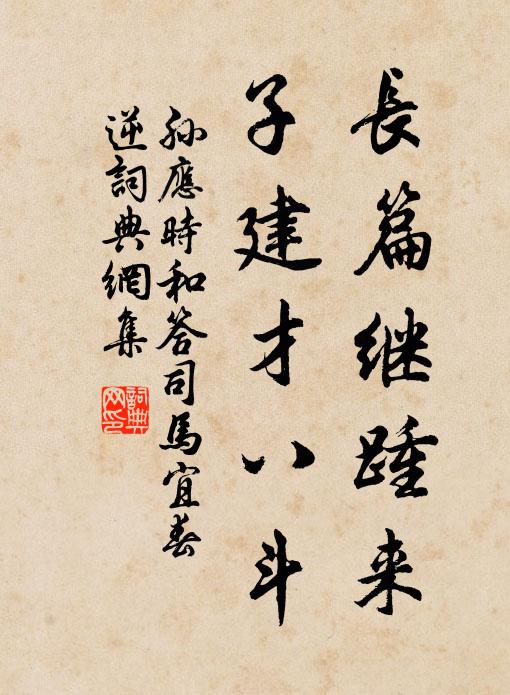 長篇继踵来
子建才八斗
孙應時和答司馬宜春
逆詞典網集
詞典网印